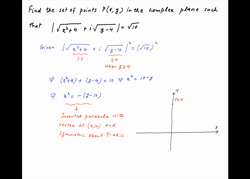 Find the set of points P(x,y) in the complex plane such
that |√x²+4 + i√y-4| = √10
Given |√x²+4 + i√y-4|² = (√10)²
≥0 ≥0
when y≥4
⇒ (x²+4) + (y-4) = 10 ⇒ x² = 10-y
⇒ x² = -(y-10)
Inverted parabola with
vertex at (0,10) and
symmetric about Y-axis
Y
X